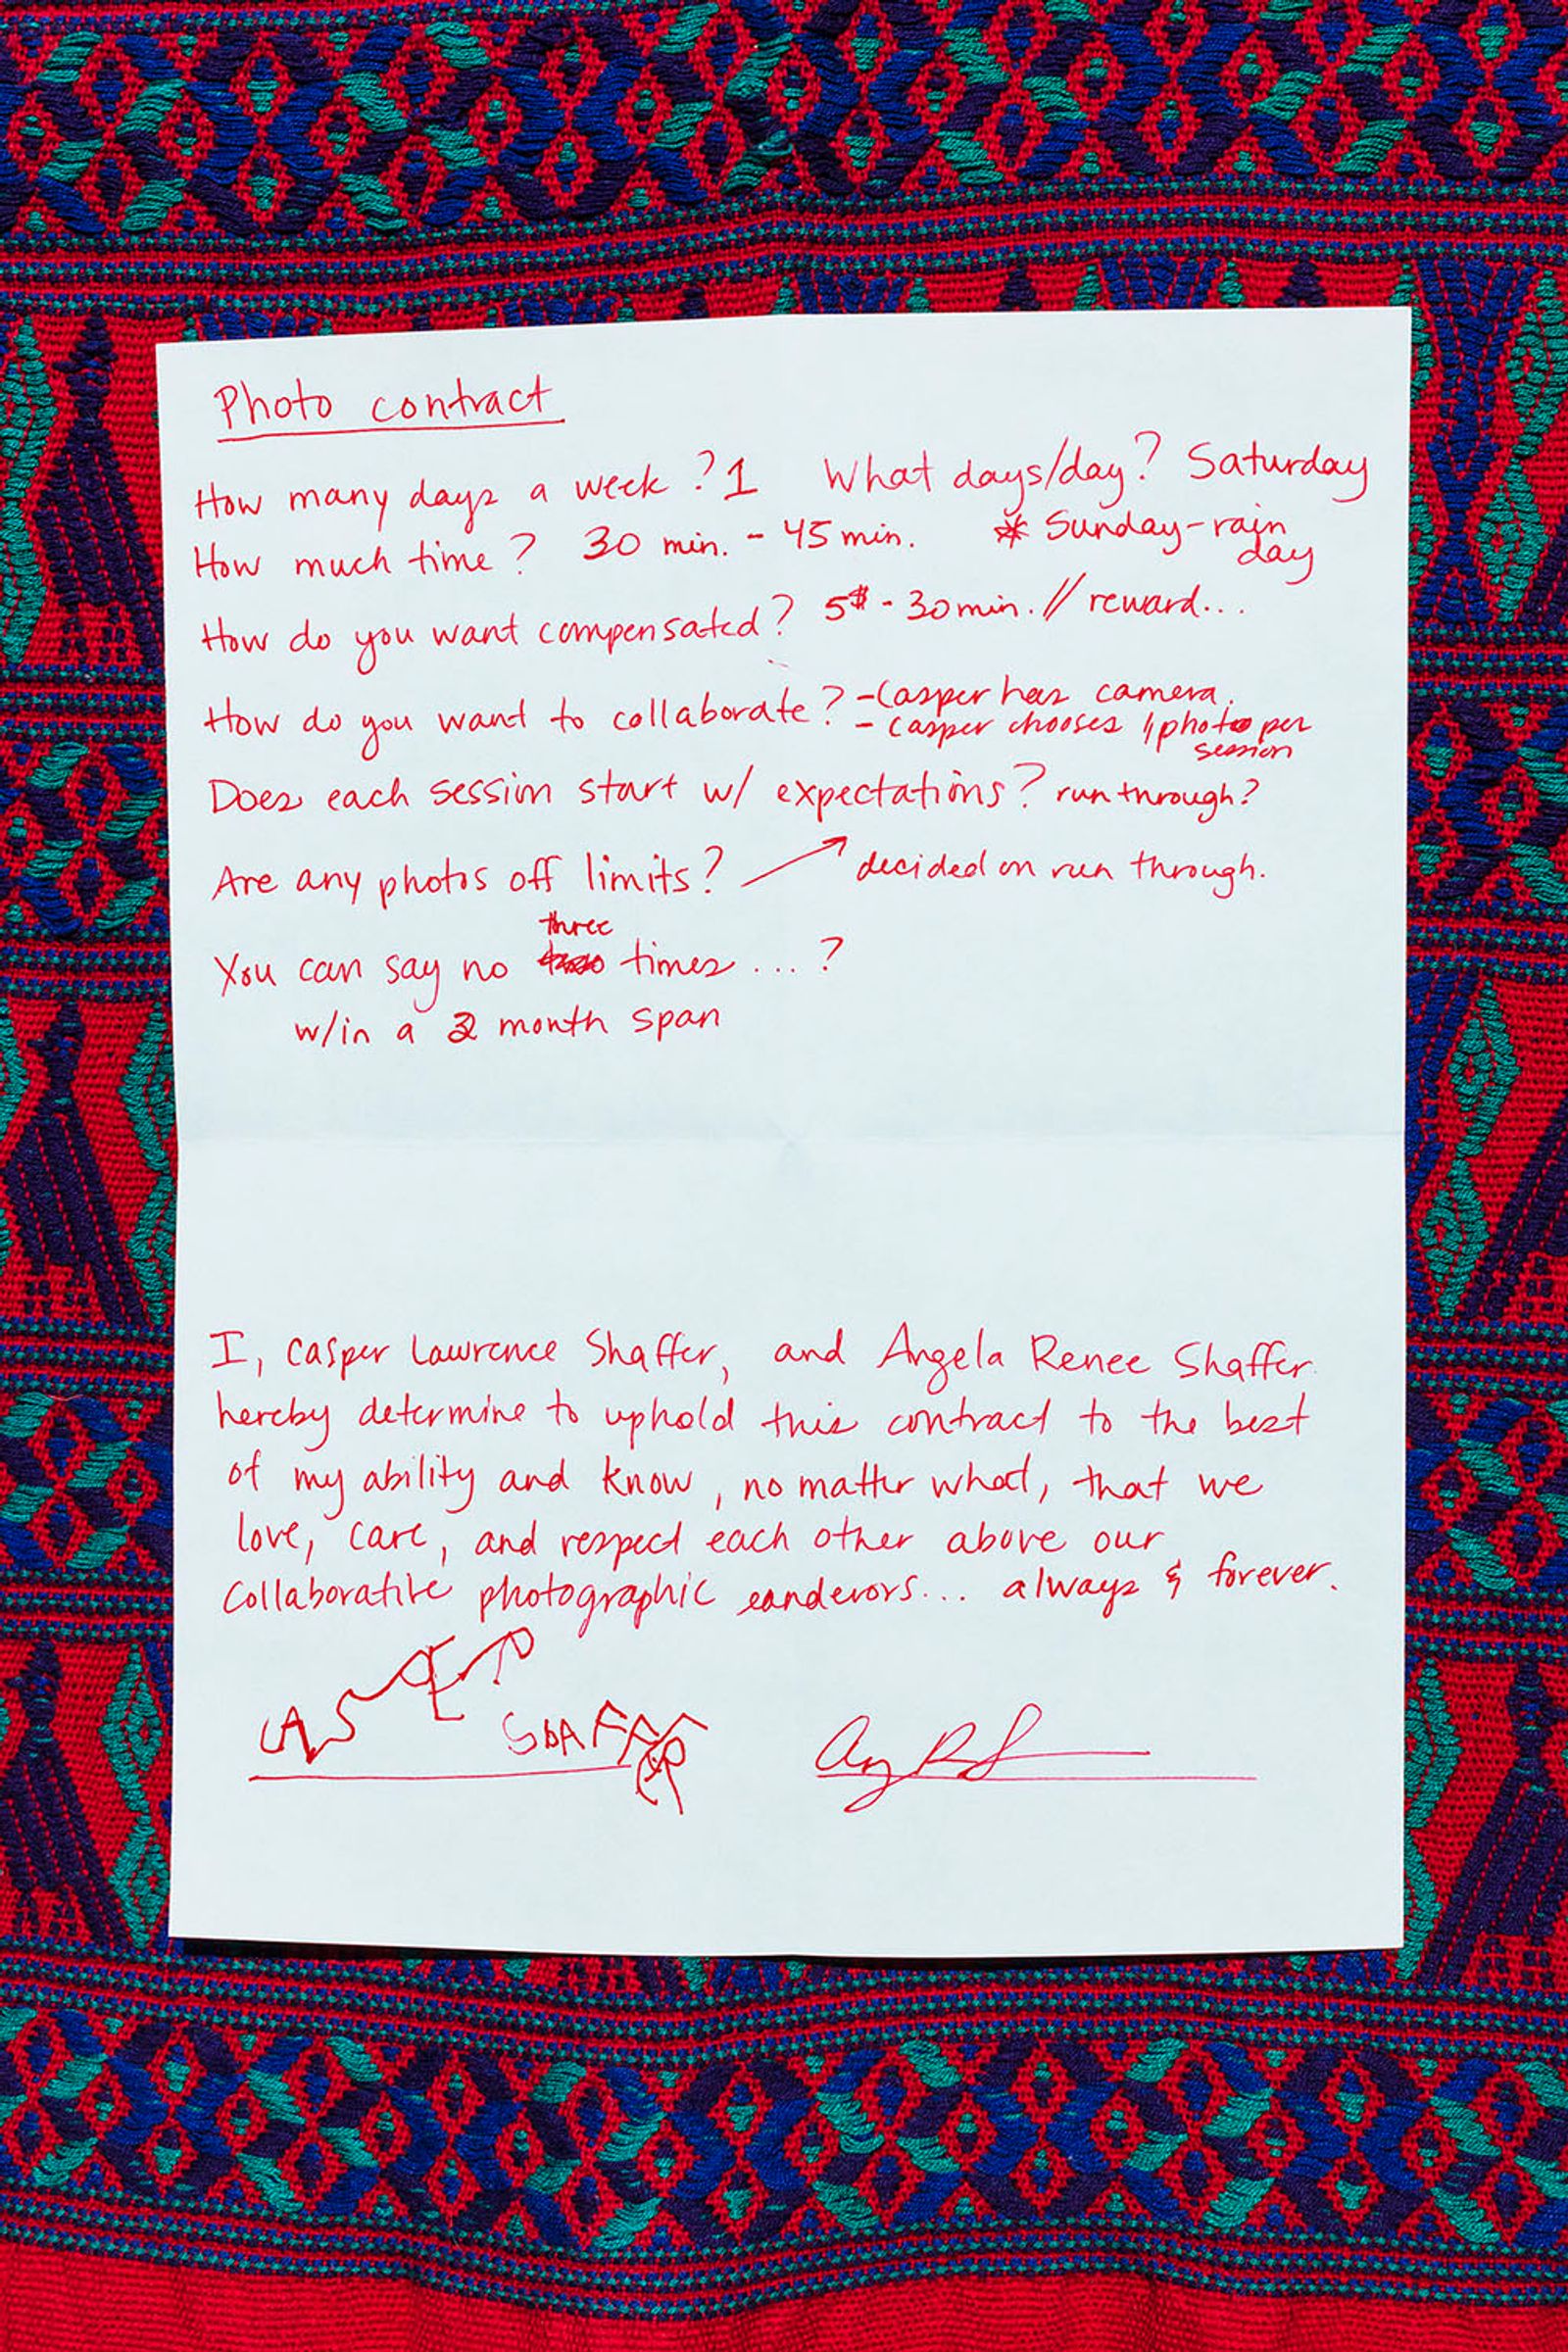 Photo contract
How many days a week? 1 What days/day? Saturday
How much time? 30 min. - 45 min. * Sunday-rain
day
How do you want compensated? 5$ - 30min. // reward...
How do you want to collaborate? -Casper has camera.
- Casper chooses 1 photo per
session
Does each session start w/ expectations? run through?
Are any photos off limits? → decided on run through.
three
You can say no two times ... ?
w/in a 2 month span
I, Casper Lawrence Shaffer, and Angela Renee Shaffer
hereby determine to uphold this contract to the best
of my ability and know, no matter what, that we
love, care, and respect each other above our
collaborative photographic eandevors... always & forever.
CASPER SHAFFER